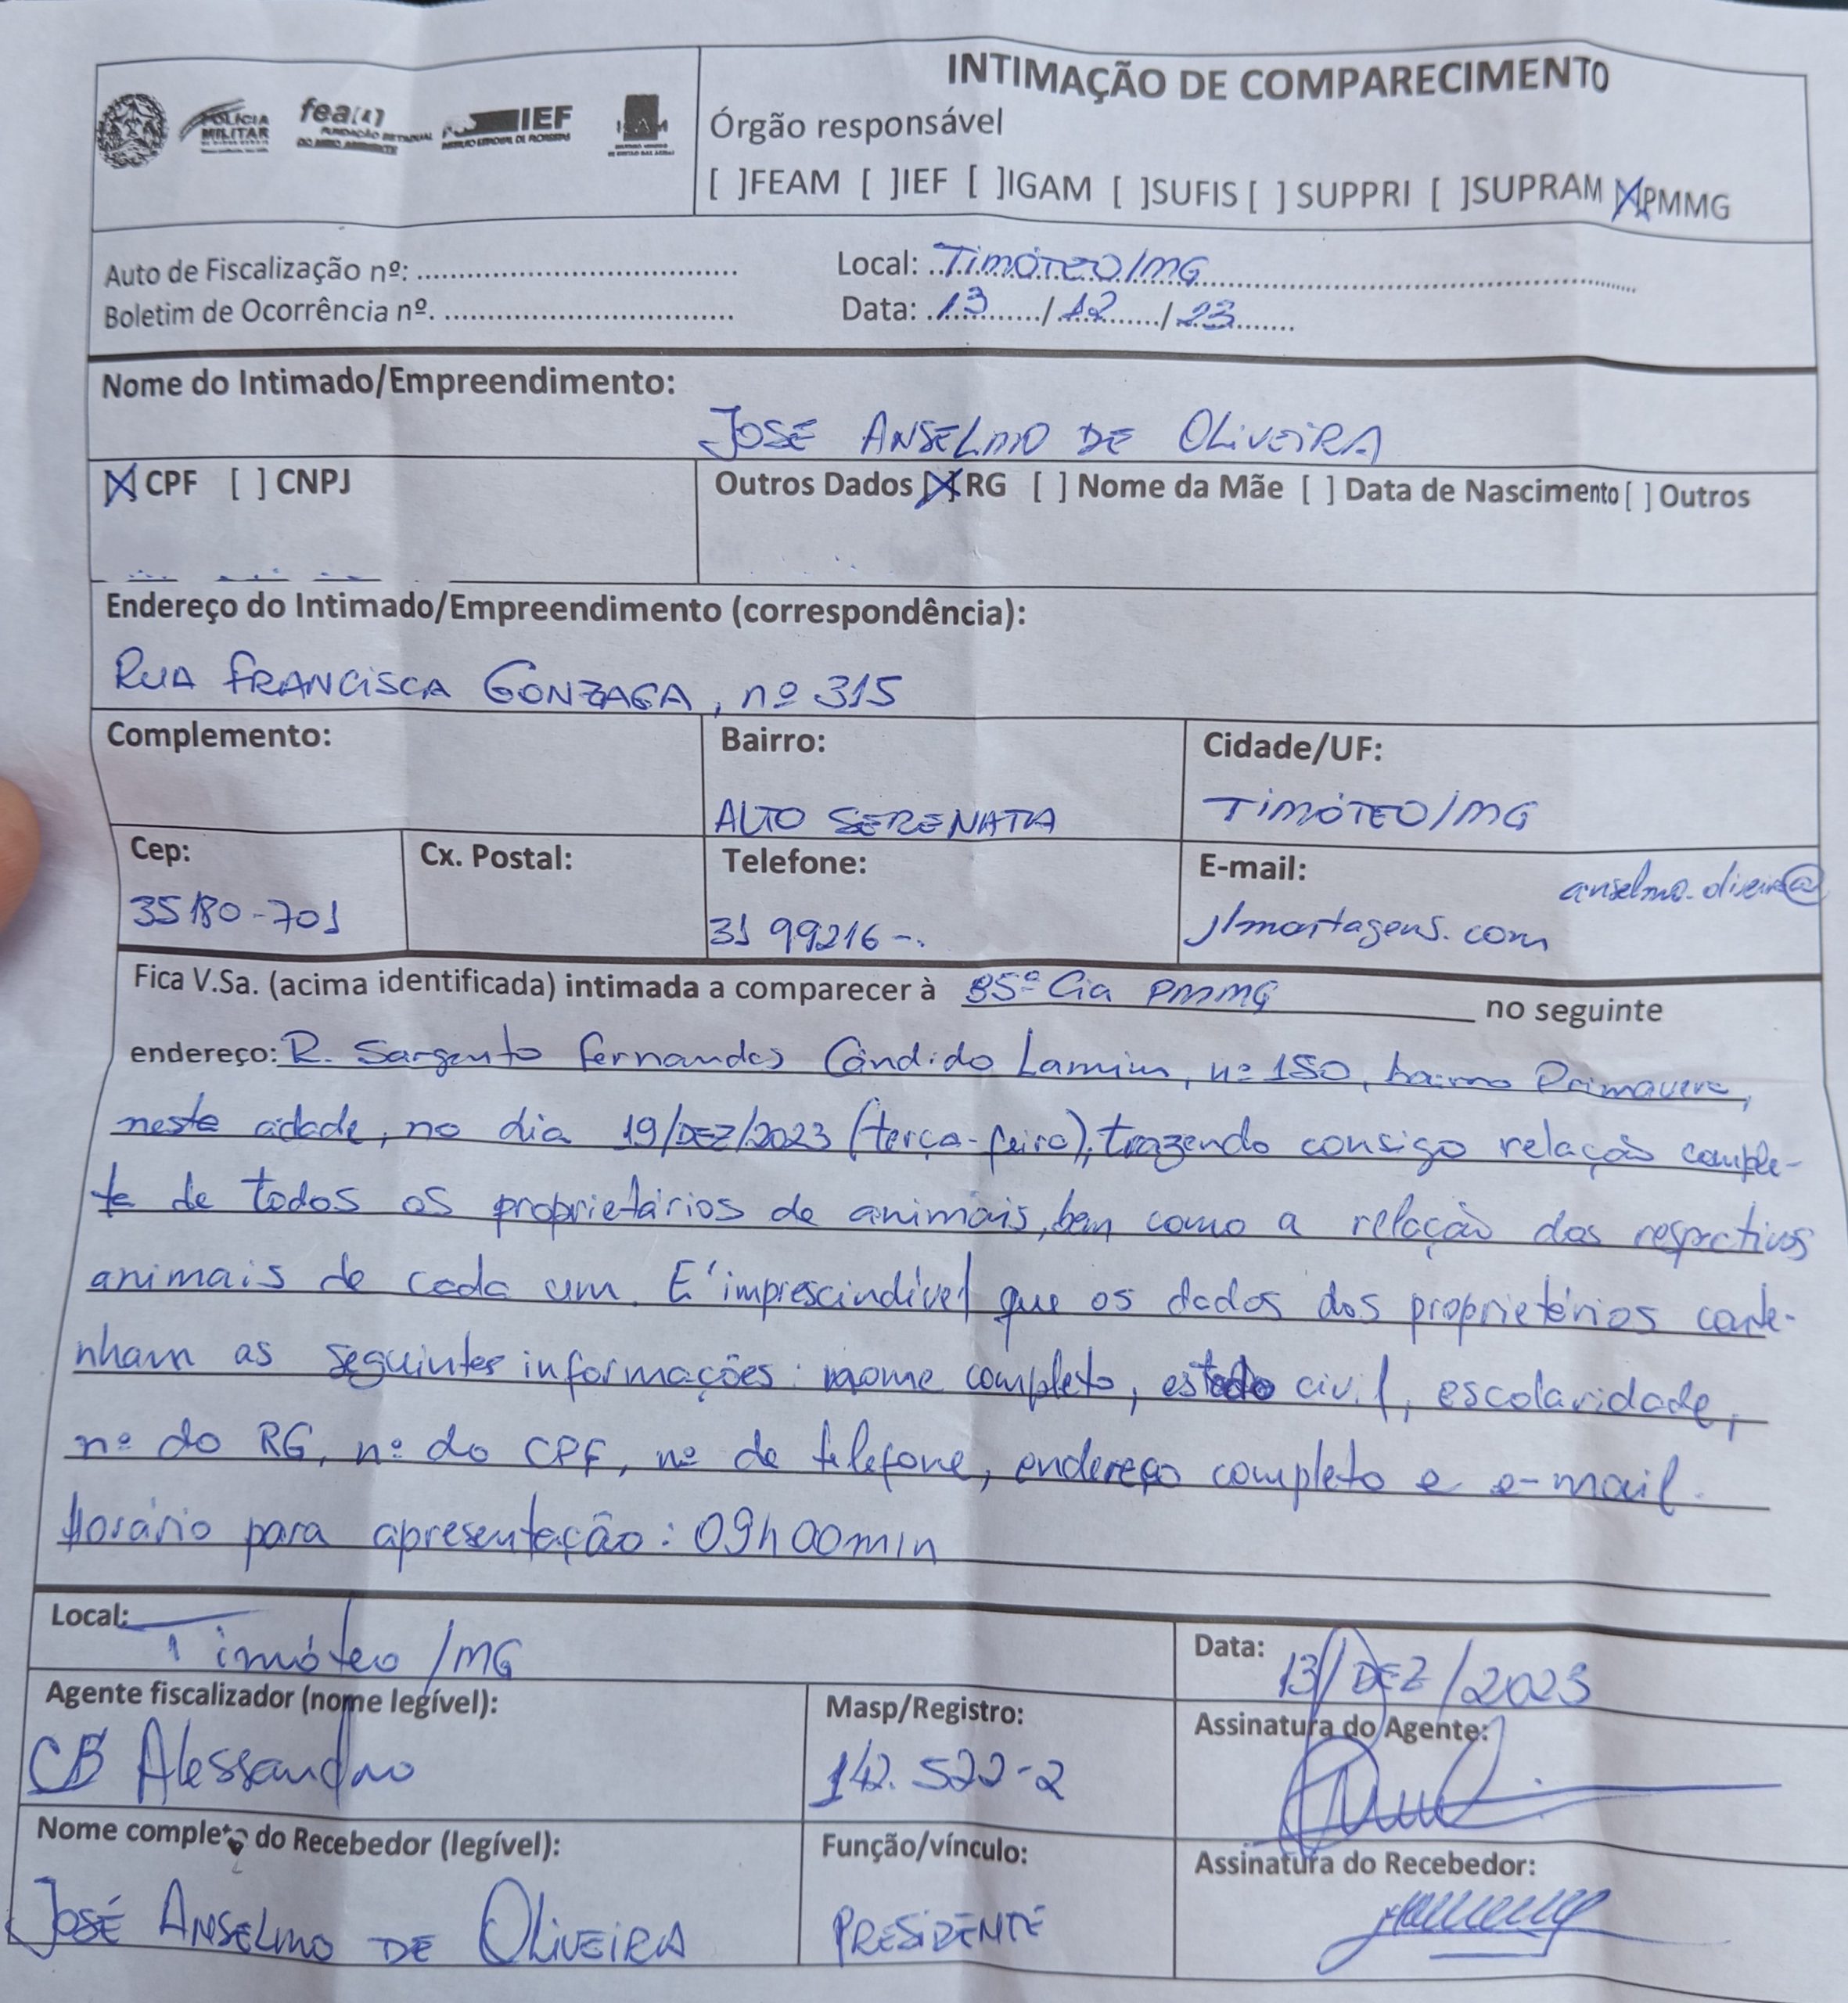 INTIMAÇÃO DE COMPARECIMENTO
POLÍCIA
MILITAR
feam
FUNDAÇÃO ESTADUAL
DO MEIO AMBIENTE
IEF
INSTITUTO ESTADUAL DE FLORESTAS
Órgão responsável
[ ]FEAM [ ]IEF [ ]IGAM [ ]SUFIS [ ] SUPPRI [ ]SUPRAM [X]PMMG
Auto de Fiscalização nº: ....................................
Local: TIMÓTEO/MG
Boletim de Ocorrência nº. .................................
Data: 13/12/23
Nome do Intimado/Empreendimento:
JOSE ANSELMO DE OLIVEIRA
[X] CPF [ ] CNPJ
Outros Dados [X] RG [ ] Nome da Mãe [ ] Data de Nascimento [ ] Outros
Endereço do Intimado/Empreendimento (correspondência):
RUA FRANCISCA GONZAGA, nº 315
Complemento:
Bairro:
ALTO SERENATA
Cidade/UF:
TIMÓTEO/MG
Cep:
35180-701
Cx. Postal:
Telefone:
31 99216-
E-mail:
anselmo.oliveira@
jlmontagens.com
Fica V.Sa. (acima identificada) intimada a comparecer à 85ª Cia PMMG no seguinte
endereço: R. Sargento Fernandes Cândido Lamim, nº 150, bairro Primavera,
neste cidade, no dia 19/DEZ/2023 (terça-feira), trazendo consigo relação comple-
ta de todos os proprietários de animais, bem como a relação dos respectivos
animais de cada um. É imprescindível que os dados dos proprietários conte-
nham as seguintes informações: nome completo, estado civil, escolaridade,
nº do RG, nº do CPF, nº de telefone, endereço completo e e-mail.
Horário para apresentação: 09h00min
Local: Timóteo/MG
Data: 13/DEZ/2023
Agente fiscalizador (nome legível):
CB Alessandro
Masp/Registro:
142.522-2
Assinatura do Agente:
Nome completo do Recebedor (legível):
JOSÉ ANSELMO DE OLIVEIRA
Função/vínculo:
PRESIDENTE
Assinatura do Recebedor: